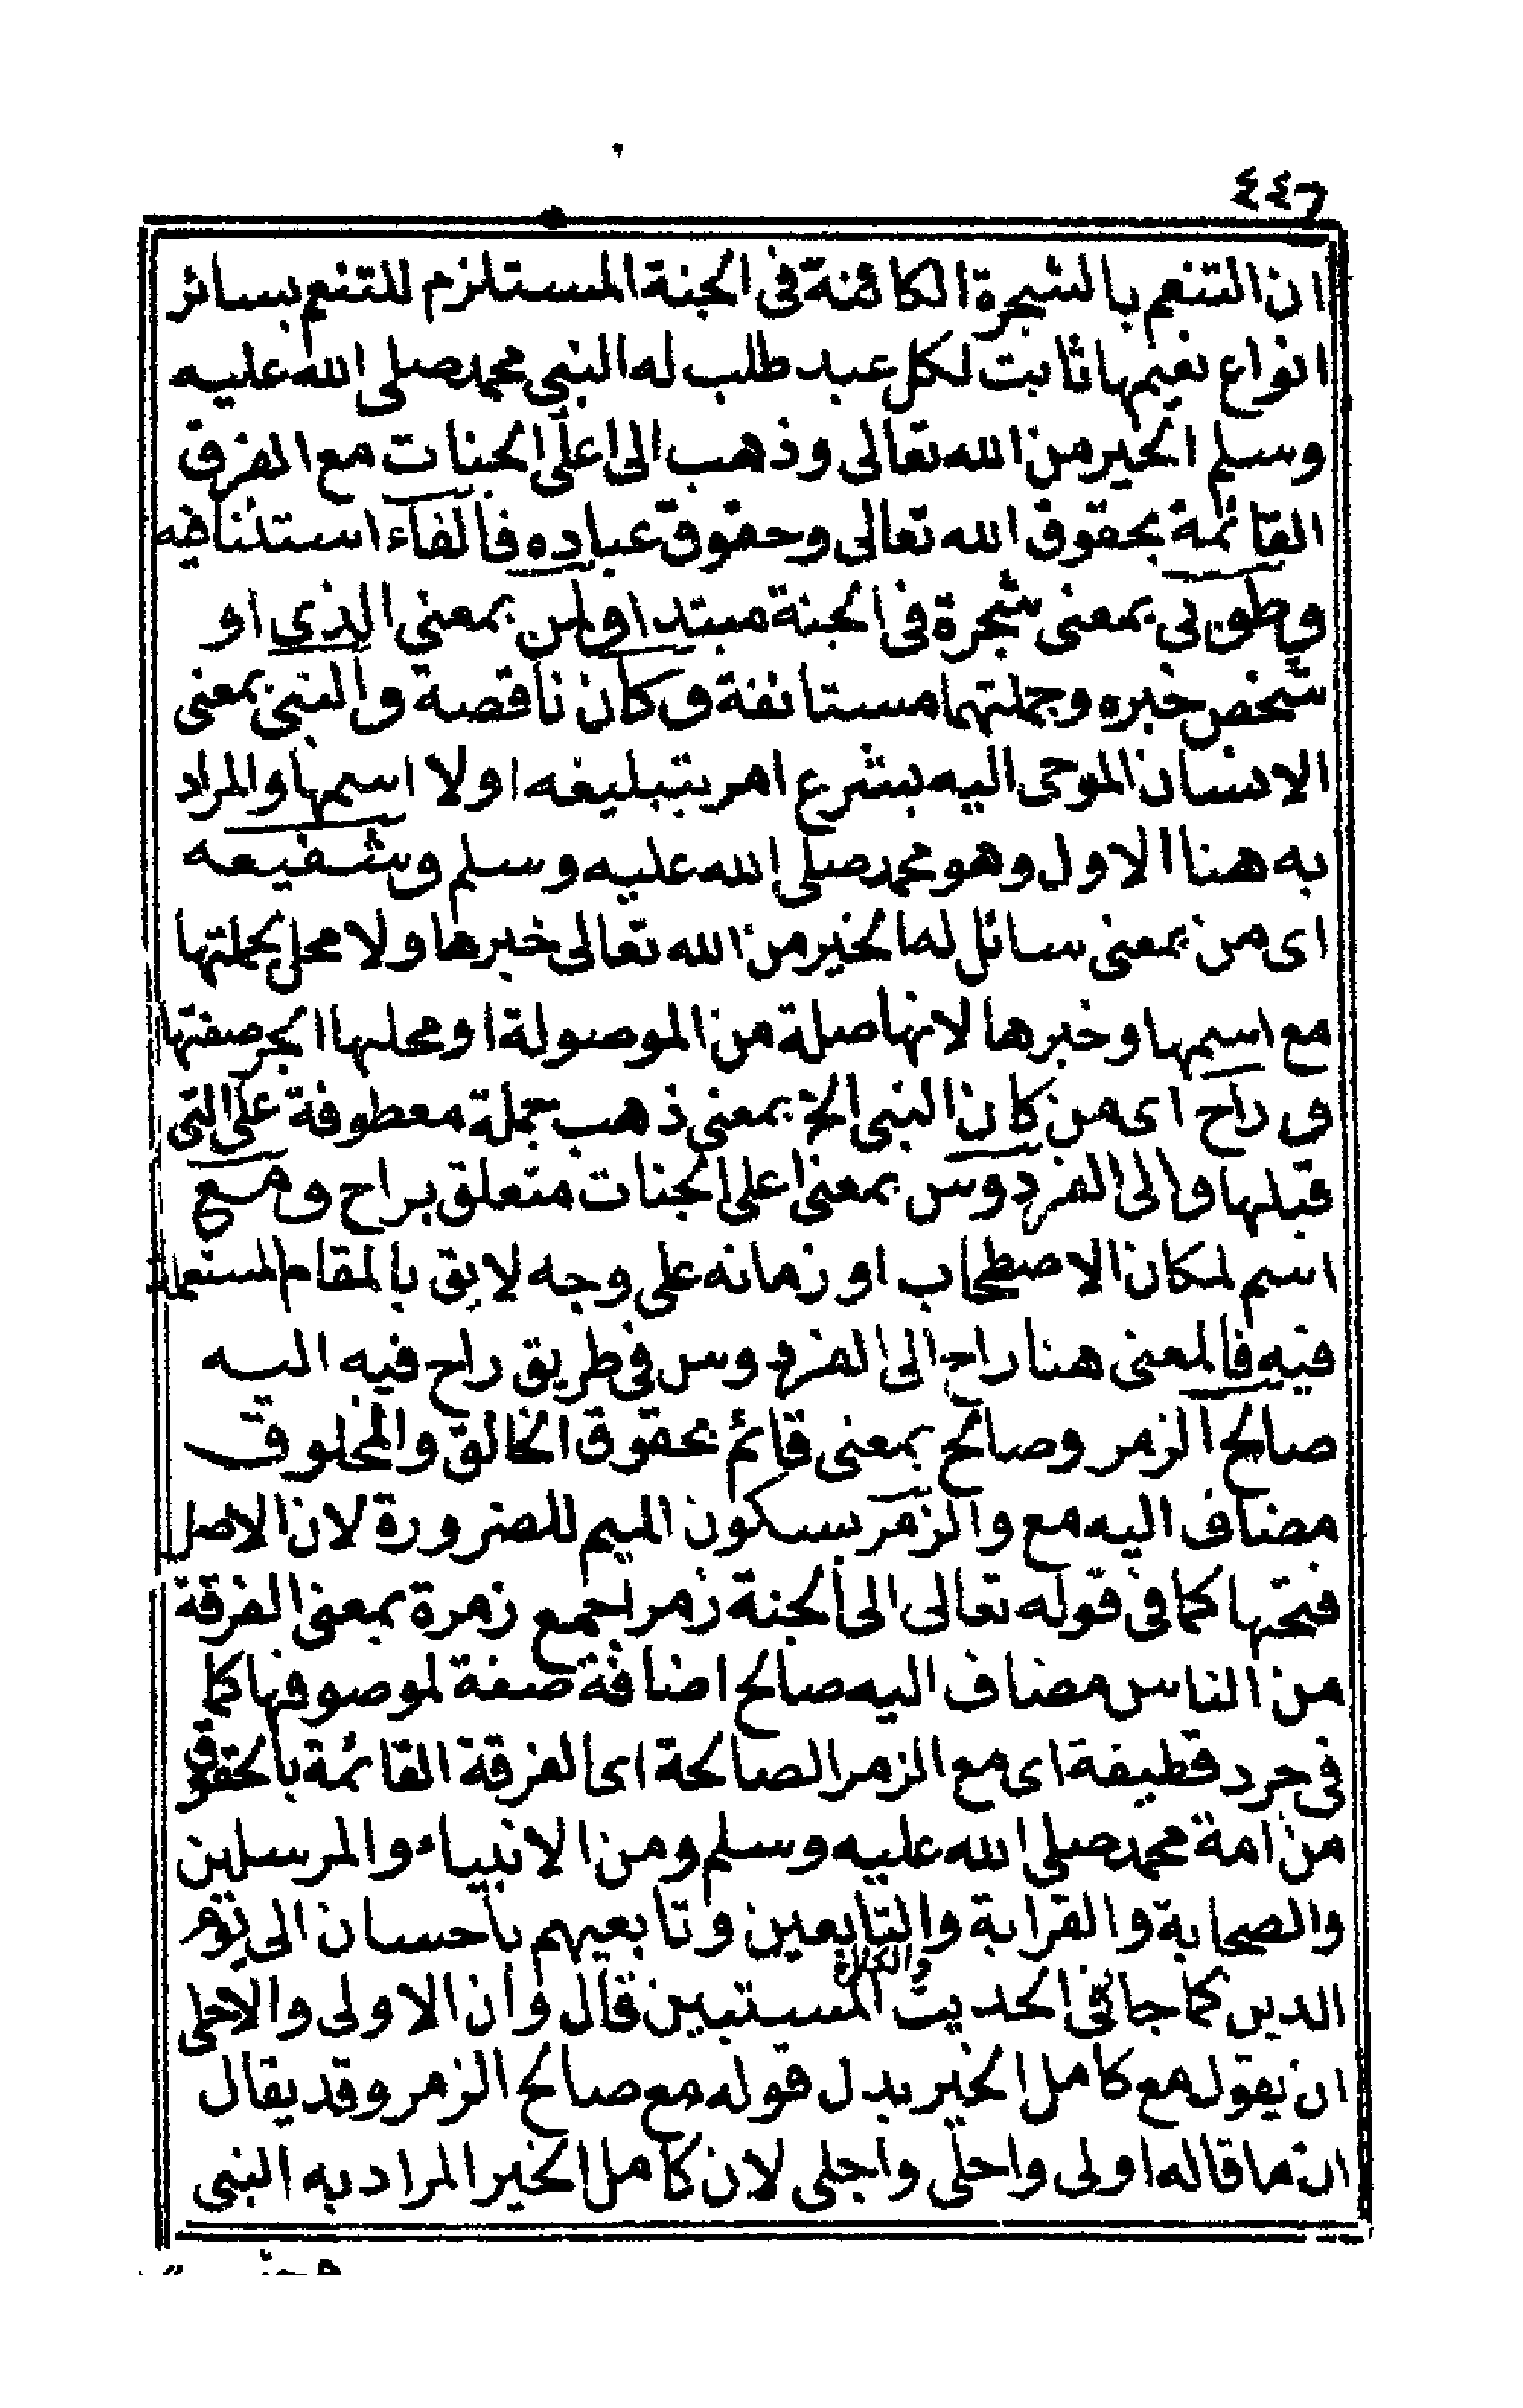 ٤٤٦
ان التنعم بالشجرة الكائنة فى الجنة المستلزم للتنعم بسائر
انواع نعيمها ثابت لكل عبد طلب له النبي محمد صلى الله عليه
وسلم الخير من الله تعالى وذهب الى اعلى الجنات مع الفرق
القائمة بحقوق الله تعالى وحقوق عباده فالفاء استئنافيه
وطوبى بمعنى شجرة فى الجنة مبتدا ولمن بمعني الذي او
شخص خبره وجملتهما مستانفة وكان ناقصة والنبي بمعنى
الانسان الموحى اليه بشرع امر بتبليغه اولا اسمها والمراد
به هنا الاول وهو محمد صلى الله عليه وسلم وشفيعه
اى من بمعنى سائل له الخير من الله تعالى خبرها ولا محل لجملتها
مع اسمها وخبرها لانها صلة من الموصولة او محلها الجر صفتها
وراح اى من كان النبى الخ بمعنى ذهب جملة معطوفة على التى
قبلها والى الفردوس بمعنى اعلى الجنات متعلق براح ومع
اسم لمكان الاصطحاب او زمانه على وجه لايق بالمقام المستعملة
فيه فالمعنى هنا راح الى الفردوس في طريق راح فيه اليه
صالح الزمر وصالح بمعنى قائم بحقوق الخالق والمخلوق
مضاف اليه مع والزمر بسكون الميم للضرورة لان الاصل
فتحها كما فى قوله تعالى الى الجنة زمرا جمع زمرة بمعنى الفرقة
من الناس مضاف اليه صالح اضافة صفة لموصوفها كما
فى جرد قطيفة اى مع الزمر الصالحة اى الفرقة القائمة بالحقوق
من امة محمد صلى الله عليه وسلم ومن الانبياء والمرسلين
والصحابة والقرابة والتابعين وتابعيهم باحسان الى يوم
الدين كما جا فى الحديث المستبين قال وان الاولى والاحلى
ان يقول مع كامل الخير بدل قوله مع صالح الزمر وقد يقال
ان ما قاله اولى واحلى واجلى لان كامل الخير المراد به النبى